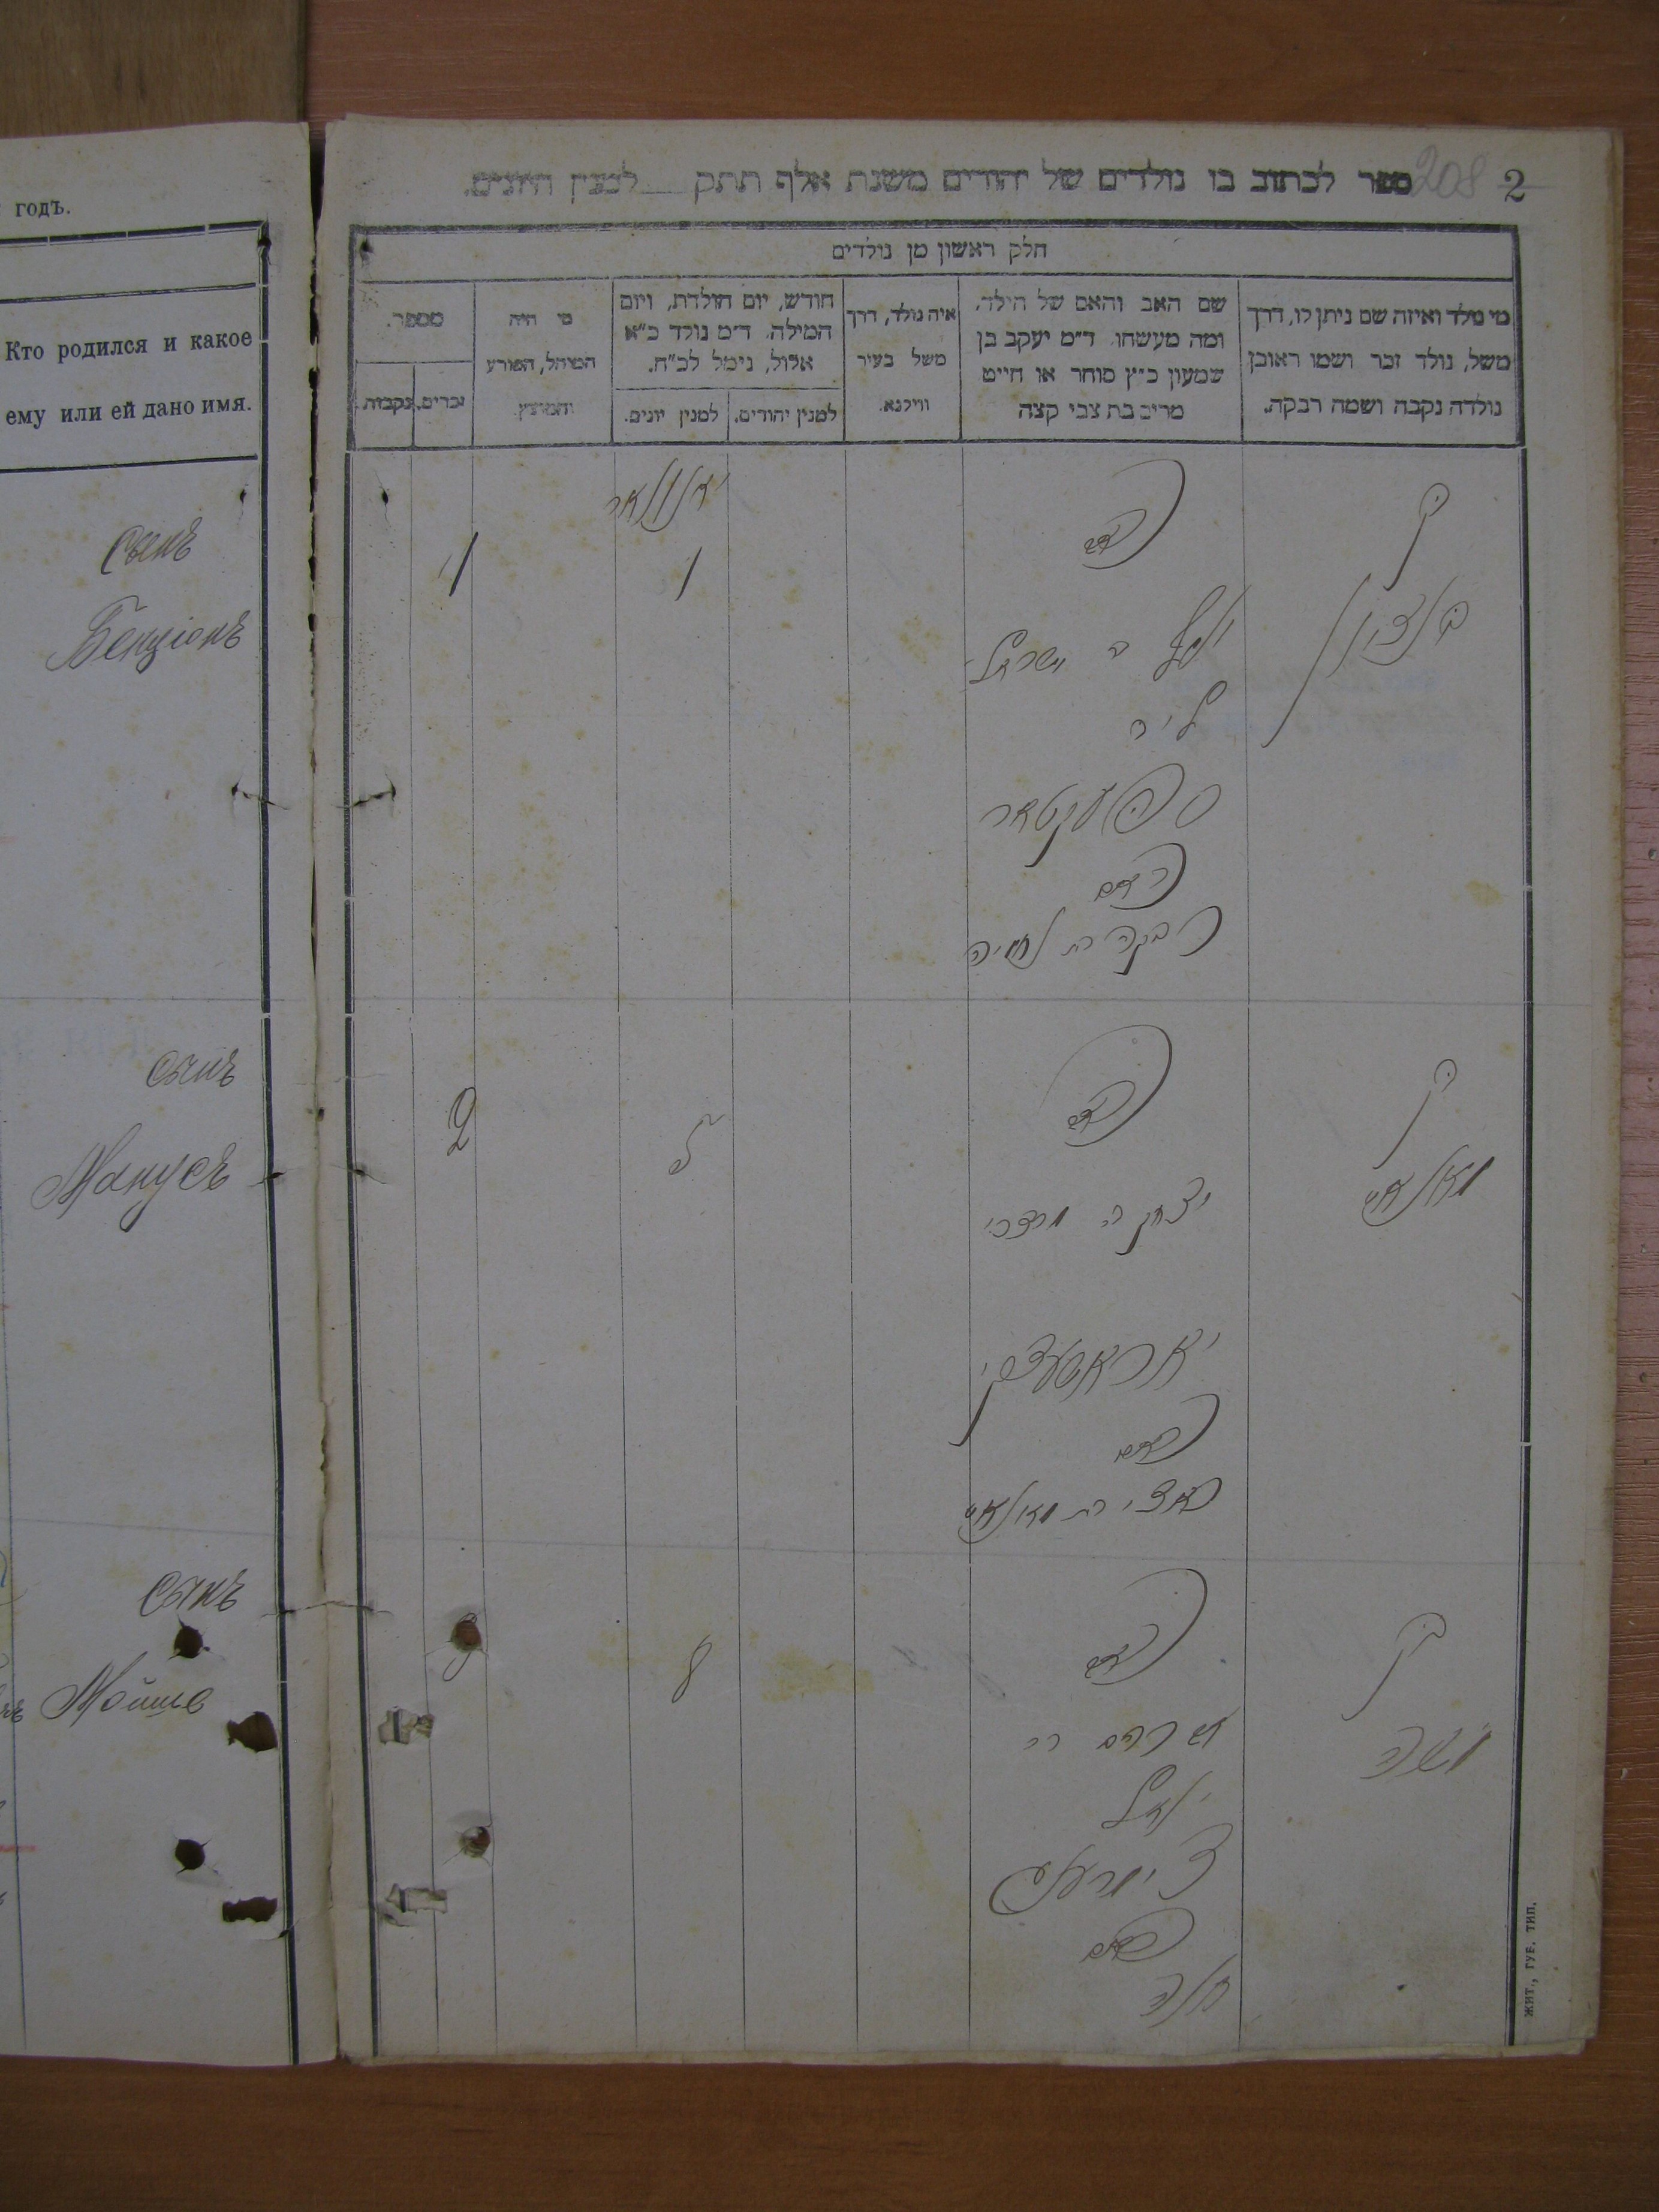 годъ.
Кто родился и какое
ему или ей дано имя.
сынъ
Бенціонъ
сынъ
Манусъ
сынъ
Мойше
208 2
ספר לכתוב בו נולדים של יהודים משנת אלף תתק למנין היונים.
חלק ראשון מן נולדים
מי נולד ואיזה שם ניתן לו, דרך
משל, נולד זכר ושמו ראובן
נולדה נקבה ושמה רבקה.
שם האב והאם של הילד,
ומה מעשהו ד״מ יעקב בן
שמעון כ״ץ סוחר או חייט
מרים בת צבי קצה
איה נולד, דרך
משל בעיר
ווילנא.
חודש, יום הולדת, ויום
המילה, ד״מ נולד כ״א
אלול, נימל לכ״ח.
למנין יהודים.
למנין יונים.
מי היה
המוהל, הפורע
והמוצץ
מספר.
זכרים.
נקבות.
בן
בן ציון
האב
יוסף ב ישראל
ליב
ספעקטאר
האם
רבקה בת נחמיה
יאנואר
1
1
בן
מאנאס
האב
יצחק ב מרדכי
האם
בת מאנאס
5
2
בן
משה
האב
אברהם ב
יואל
האם
חנה
8
3
ЖИТ., ГУБ. ТИП.